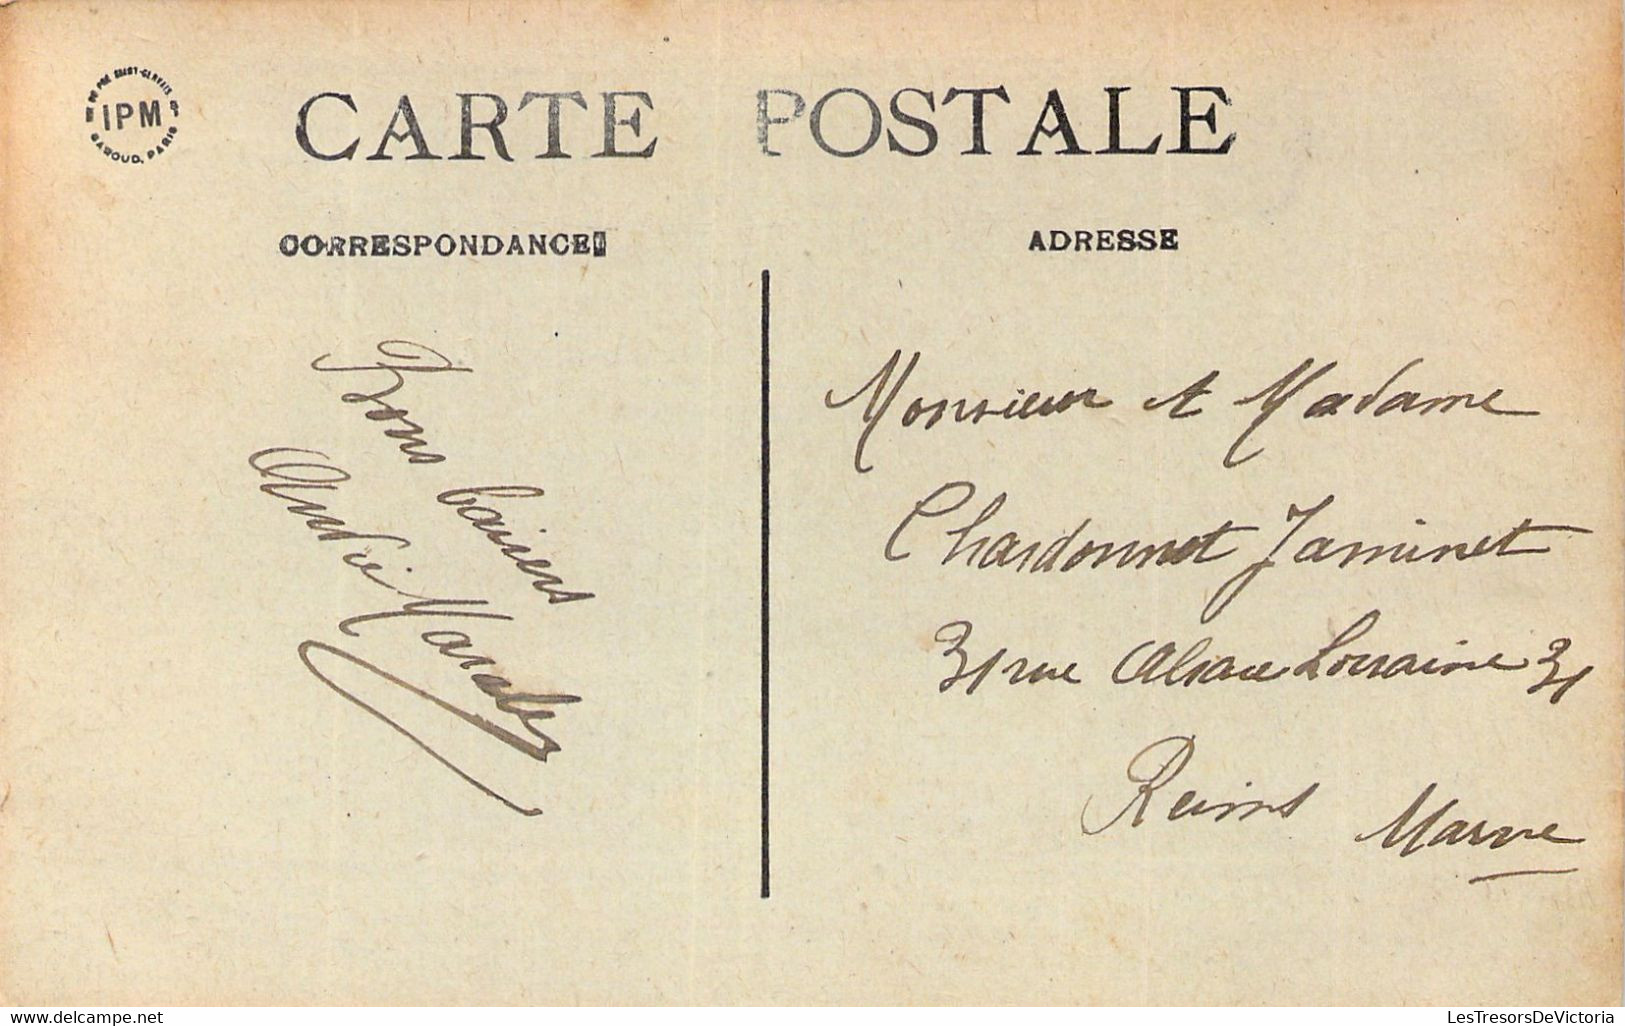 IPM
BAROUD, PARIS
CARTE POSTALE
CORRESPONDANCE
ADRESSE
Bons baisers
André
Monsieur et Madame
Chardonnet Jaminet
31 rue Alsace Lorraine 31
Reims Marne
delcampe.net
LesTresorsDeVictoria